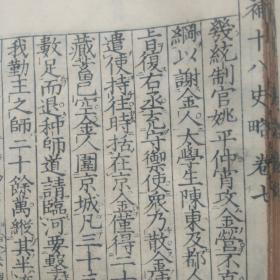 補十八史略卷七
發統制官姚平仲宵攻金營不
綱以謝金人大學生陳東及都人
上旨復右丞充守禦使衆乃散金
遣使持往時括在京金僅得二十
藏蓄已空金人圍京城凡三十三
數足而退种師道請臨河要擊
我勤王之師二十餘萬縱其半